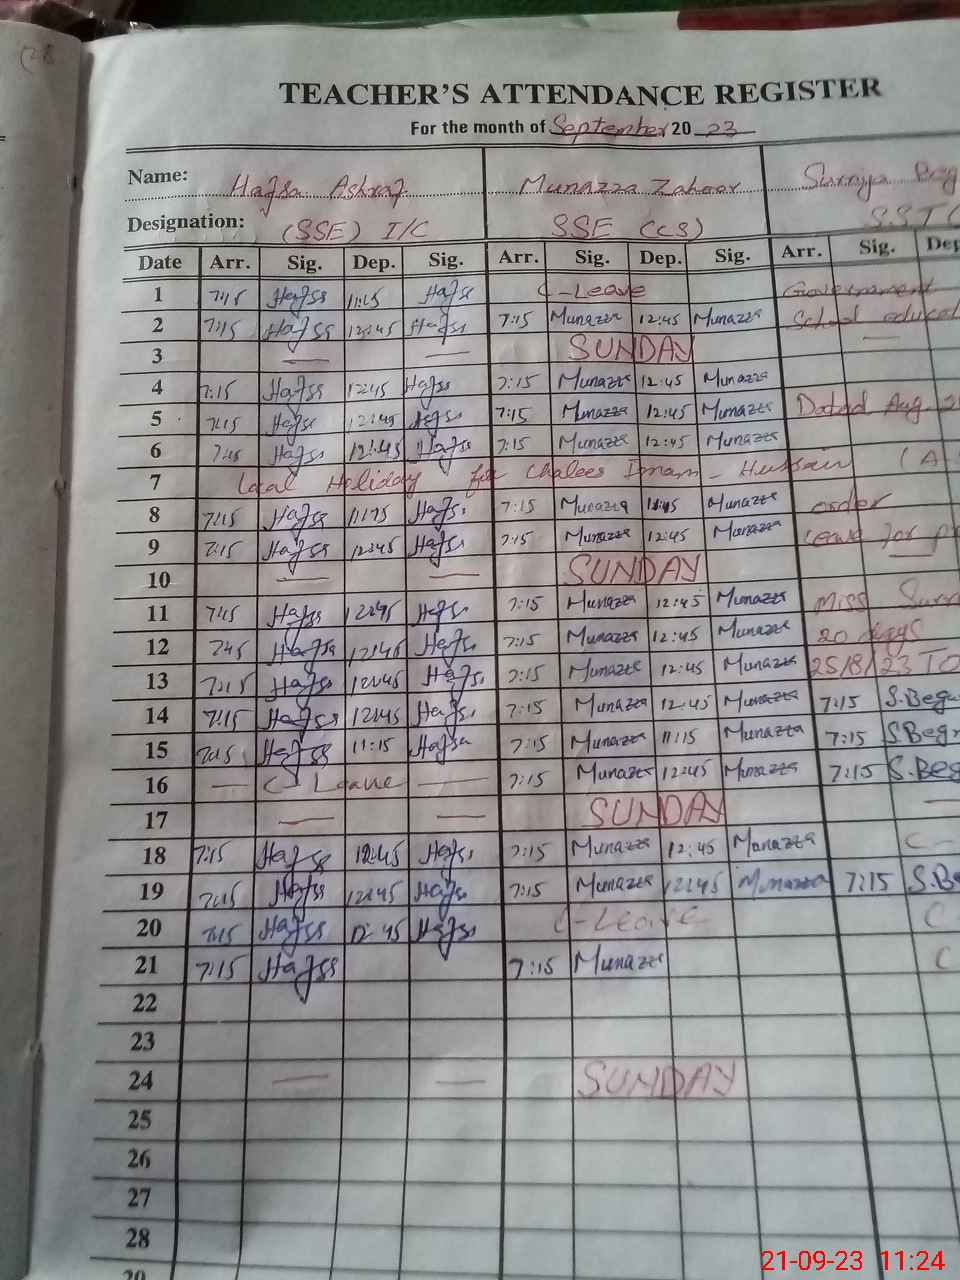 TEACHER'S ATTENDANCE REGISTER
For the month of September 20 23
Name: Hafsa Ashraf Munazza Zahoor Surayya
Designation: (SSE) I/C SSE (CS) SST
Date Arr. Sig. Dep. Sig. Arr. Sig. Dep. Sig. Arr. Sig. Dep
1 7:15 Hafsa 11:15 Hafsa C-Leave Government
2 7:15 Hafsa 12:45 Hafsa 7:15 Munazza 12:45 Munazza School educat
3 — — SUNDAY —
4 7:15 Hafsa 12:45 Hafsa 7:15 Munazza 12:45 Munazza
5 7:15 Hafsa 12:45 Hafsa 7:15 Munazza 12:45 Munazza Dated Aug.
6 7:15 Hafsa 12:45 Hafsa 7:15 Munazza 12:45 Munazza
7 Local Holiday for Chalees Imam - Hussain (A
8 7:15 Hafsa 11:15 Hafsa 7:15 Munazza 11:45 Munazza order
9 7:15 Hafsa 12:45 Hafsa 7:15 Munazza 12:45 Munazza leave for
10 — — SUNDAY —
11 7:15 Hafsa 12:45 Hafsa 7:15 Munazza 12:45 Munazza Miss Surr
12 7:15 Hafsa 12:45 Hafsa 7:15 Munazza 12:45 Munazza 20 days
13 7:15 Hafsa 12:45 Hafsa 7:15 Munazza 12:45 Munazza 25/8/23 TO
14 7:15 Hafsa 12:45 Hafsa 7:15 Munazza 12:45 Munazza 7:15 S.Begu
15 7:15 Hafsa 11:15 Hafsa 7:15 Munazza 11:15 Munazza 7:15 S.Beg
16 — C-Leave — 7:15 Munazza 12:45 Munazza 7:15 S.Beg
17 — — SUNDAY —
18 7:15 Hafsa 12:45 Hafsa 7:15 Munazza 12:45 Munazza C-
19 7:15 Hafsa 12:45 Hafsa 7:15 Munazza 12:45 Munazza 7:15 S.Be
20 7:15 Hafsa 12:45 Hafsa C-Leave C
21 7:15 Hafsa 7:15 Munazza C
22
23
24 — — SUNDAY
25
26
27
28
21-09-23 11:24